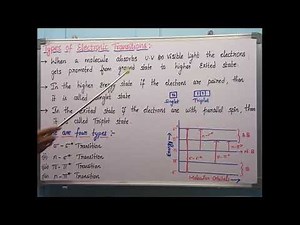 Types of Electronic Transitions:-
→ When a molecule absorbs U.V (or) Visible light the electrons
gets promoted from ground state to higher Exited state
→ In the higher energy state if the electrons are paired, then
it is called singlet state
Singlet Triplet
→ In the exited state if the electrons are with parallel spin, then
it is called Triplet state.
are four types:-
σ - σ* Transition
Transition
Transition
π - π* Transition
Energy
Molecular Orbitals